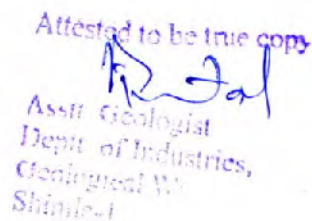 Attested to be true copy
Asstt. Geologist
Deptt. of Industries,
Geological
Shimla-1